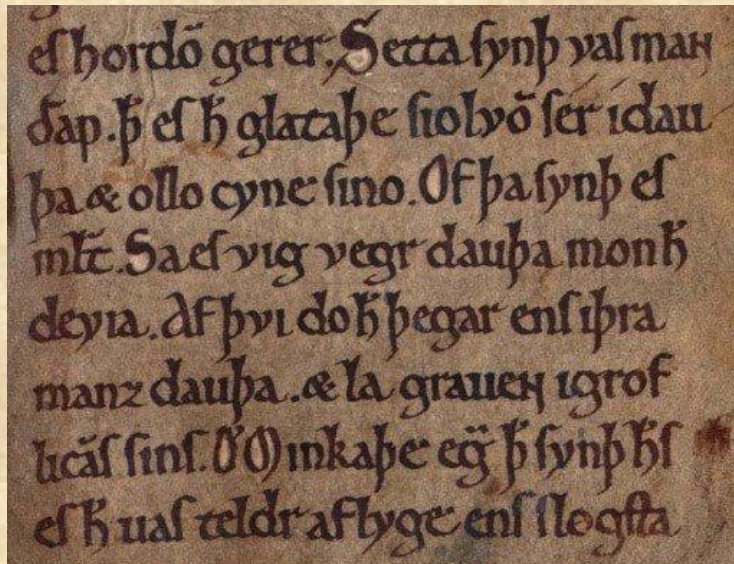 eſ hordō gerer. Setta ſynþ vaſ maɴ
dͬap. þ̄ eſ h̄ glataþe ſiolvō ſer idau
þa & ollo cyne ſino. Of þa ſynþ eſ
mł̄t. Sa eſ vig vegr dauþa mon h̄
deyia. Af þvi do h̄ þegar enſ iþra
manz dauþa. & la graueɴ igrof
licāſ ſinſ. O Minkaþe eg̅ þ̄ ſynþ h̄ſ
eſ h̄ uaſ teldr aflyge enſ ſlogſta